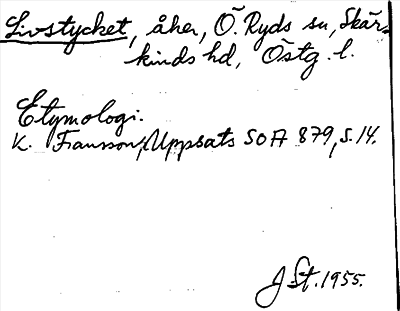 Livstycket, åker, Ö. Ryds sn, Skär-
kinds hd, Östg. l.
Etymologi:
K. Fransson, Uppsats SOA 879, s. 14.
J St. 1955.